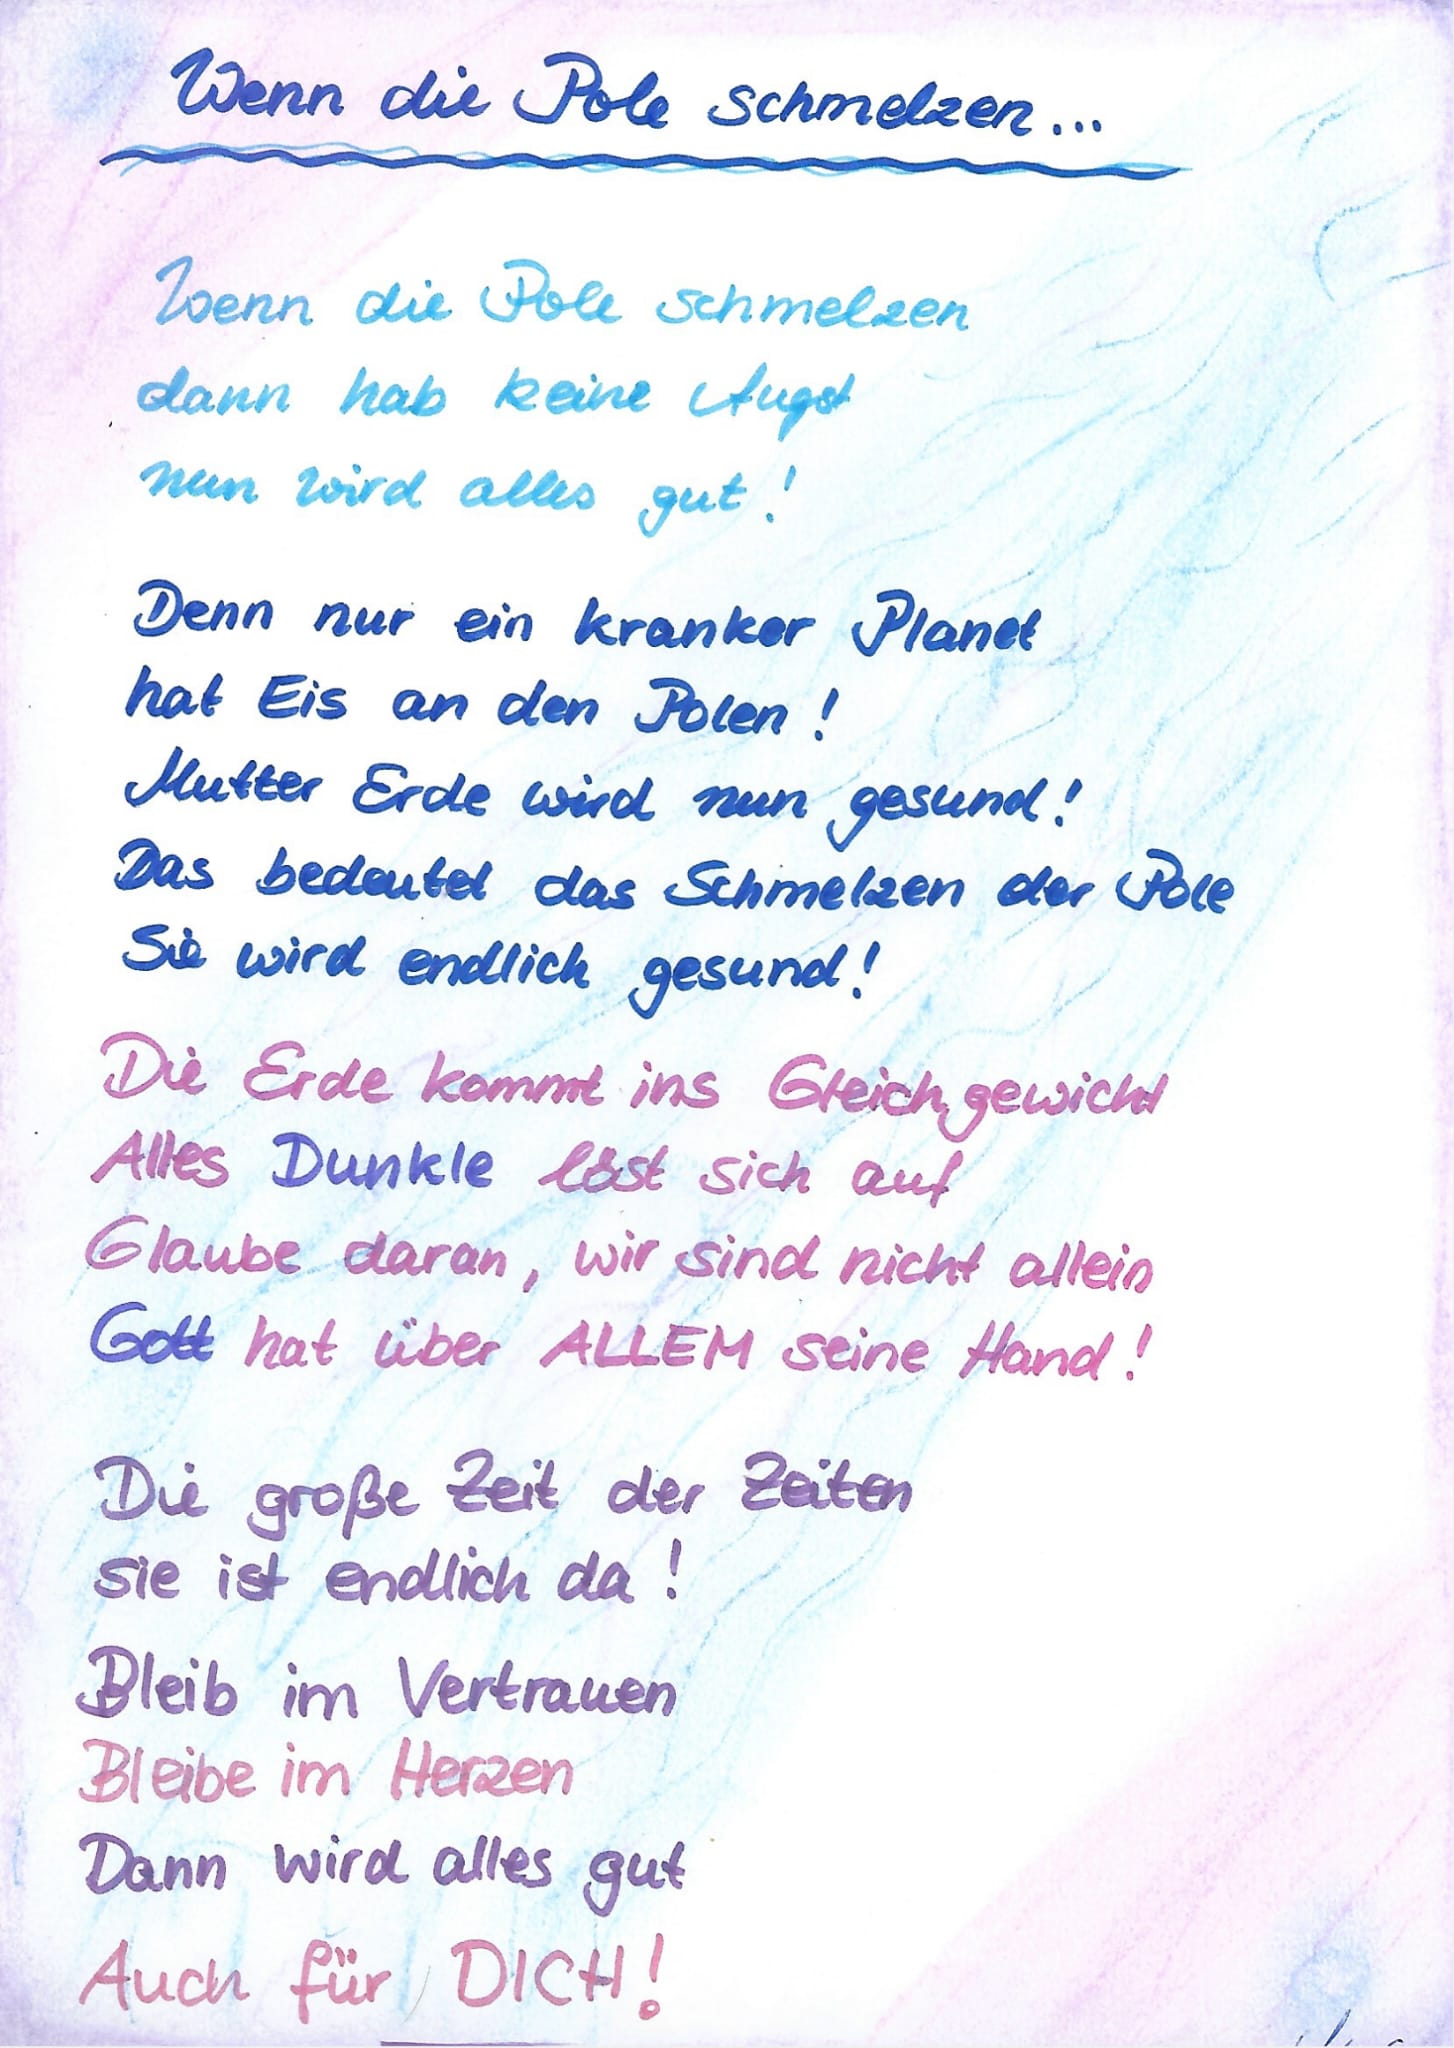 Wenn die Pole schmelzen...
Wenn die Pole schmelzen
dann hab keine Angst
nun wird alles gut!
Denn nur ein kranker Planet
hat Eis an den Polen!
Mutter Erde wird nun gesund!
Das bedeutet das Schmelzen der Pole
Sie wird endlich gesund!
Die Erde kommt ins Gleichgewicht
Alles Dunkle löst sich auf
Glaube daran, wir sind nicht allein
Gott hat über ALLEM seine Hand!
Die große Zeit der Zeiten
sie ist endlich da!
Bleib im Vertrauen
Bleibe im Herzen
Dann wird alles gut
Auch für DICH!